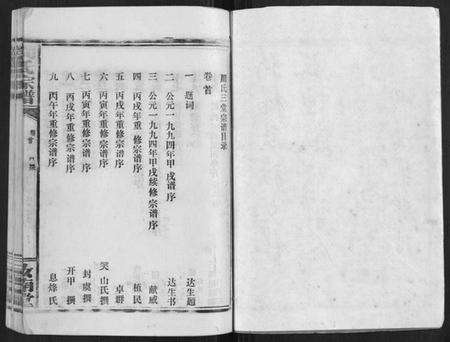 周氏三堂宗谱目录
卷首
一 题词 达生题
二 公元一九九四年甲戌谱序 达生书
三 公元一九九四年甲戌续修宗谱序 献威
四 丙戌年重修宗谱序 植民
五 丙戌年重修宗谱序 卓群
六 丙寅年重修宗谱序 天山氏撰
七 丙寅年重修宗谱序 封虞撰
八 丙戌年重修宗谱序 开甲撰
九 丙午年重修宗谱序 息烽氏
氏宗谱
卷首